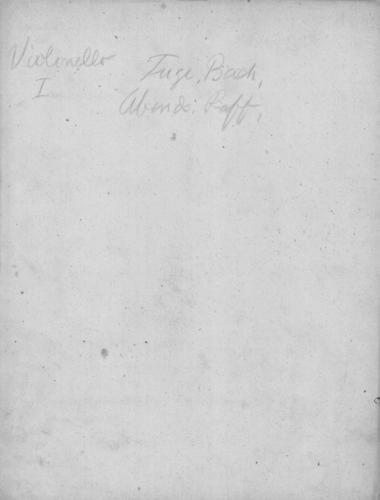 Violoncello
I
Fuge, Bach,
Abends: Raff,